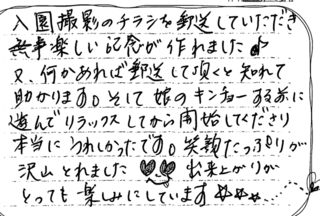 入園撮影のチラシを郵送していただき
無事楽しい記念が作れました♪
又、何かあれば郵送して頂くと知れて
助かります。そして娘のキンチョーする前に
遊んでリラックスしてから開始してくださり
本当にうれしかったです。笑顔たっぷりが
沢山とれました 出来上がりが
とっても楽しみにしています☆☆☆